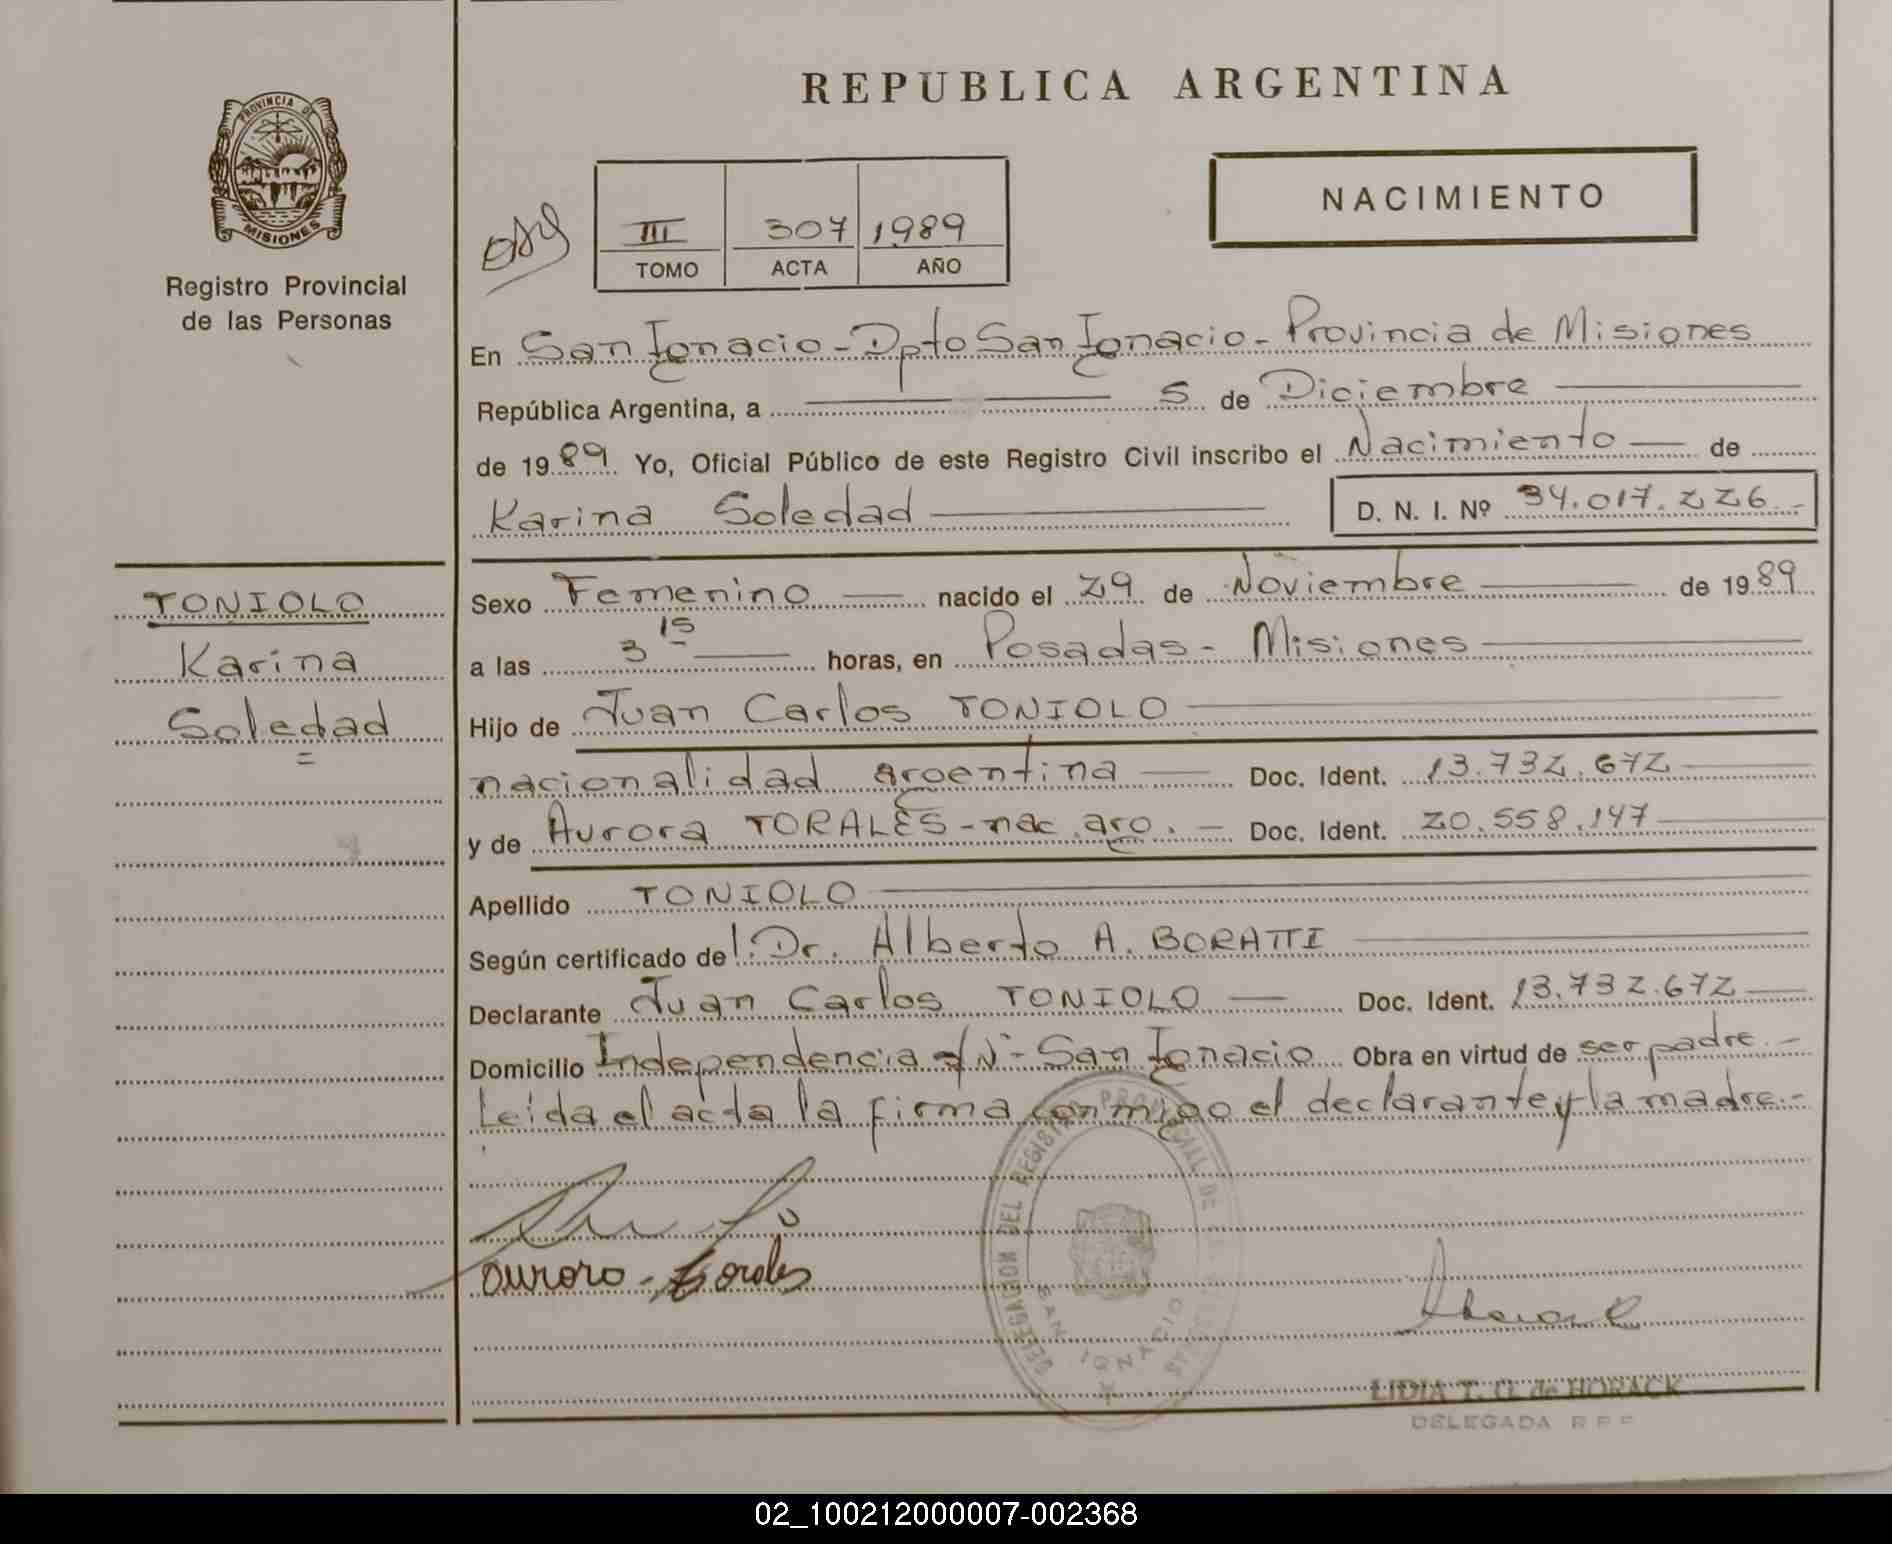 REPUBLICA ARGENTINA
PROVINCIA DE
MISIONES
Registro Provincial
de las Personas
NACIMIENTO
III 307 1989
TOMO ACTA AÑO
En San Ignacio - Dpto San Ignacio - Provincia de Misiones
República Argentina, a 5 de Diciembre
de 1989 Yo, Oficial Público de este Registro Civil inscribo el Nacimiento de
Karina Soledad
D. N. I. Nº 34.017.226
TONIOLO
Karina
Soledad
Sexo Femenino nacido el 29 de Noviembre de 1989
a las 3 15 horas, en Posadas - Misiones
Hijo de Juan Carlos TONIOLO
nacionalidad argentina Doc. Ident. 13.732.672
y de Aurora TORALES - nac. arg. Doc. Ident. 20.558.147
Apellido TONIOLO
Según certificado del Dr. Alberto A. BORATTI
Declarante Juan Carlos TONIOLO Doc. Ident. 13.732.672
Domicilio Independencia s/Nº - San Ignacio Obra en virtud de ser padre.-
Leída el acta la firma conmigo el declarante y la madre.-
aurora - torales
DELEGACION DEL REGISTRO PROVINCIAL DE LAS PERSONAS
SAN IGNACIO
LIDIA T. G. de HORACK
DELEGADA R P P
02_100212000007-002368